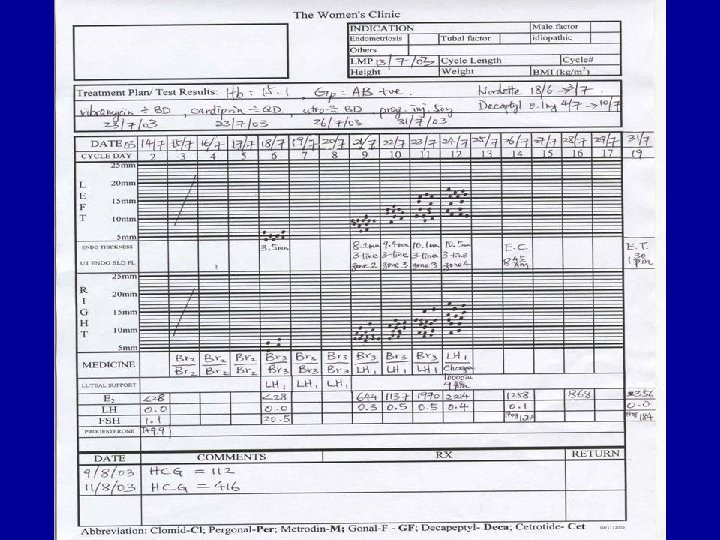 The Women's Clinic
INDICATION Male factor
Endometriosis Tubal factor idiopathic
Others
LMP 13/7/03 Cycle Length Cycle#
Height Weight BMI (kg/m²)
Treatment Plan/ Test Results: Hb = 15.1 , Gp = AB +ve . Nordette 18/6 → 3/7
vibromycin ÷ BD , cardiprin ÷ QD , utro ÷ BD , preg. inj. Decapeptyl 0.1mg 4/7 → 10/7
23/7/03 23/7/03 26/7/03 31/7/03
DATE 03 14/7 15/7 16/7 17/7 18/7 19/7 20/7 21/7 22/7 23/7 24/7 25/7 26/7 27/7 28/7 29/7 31/7
CYCLE DAY 2 3 4 5 6 7 8 9 10 11 12 13 14 15 16 17 19
25mm
L 20mm
E 15mm
F
T 10mm
5mm
ENDO THICKNESS 3.5mm 8.2mm 9.4mm 10.1mm 10.5mm E.C. E.T.
UT ENDO BLO FL 3-line 3-line 3-line 3-line 8 45 am 1 30 pm
zone 2 zone 3 zone 3 zone 4
25mm
R 20mm
I
G 15mm
H 10mm
T
5mm
MEDICINE Br2 Br2 Br2 Br3 Br3 Br3 Br3 Br3 Br3 LH1
Br2 Br2 Br2 Br3 Br3 Br3 LH1 LH1 LH1
LUTEAL SUPPORT LH1 LH1 LH1 9pm
E2 <28 <28 644 1137 1970 224 1258 868 356
LH 0.0 0.0 0.3 0.5 0.5 0.4 0.1 0.0
FSH 1.1 20.5 184
PROGESTERONE
DATE COMMENTS RX RETURN
9/8/03 HCG = 112
11/8/03 HCG = 416
Abbreviation: Clomid-Cl; Pergonal-Per; Metrodin-M; Gonal-F - GF; Decapeptyl- Deca; Cetrotide- Cet